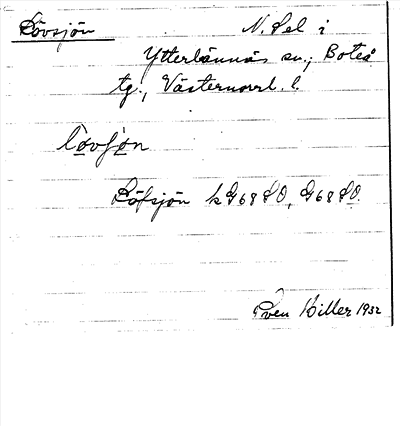 Lövsjön N. Sel i
Ytterlännäs sn.; Boteå
tg., Västernorrl. l.
lövʃön
Löfsjön k G68 SO, G68 SO.
Sven Hiller 1932